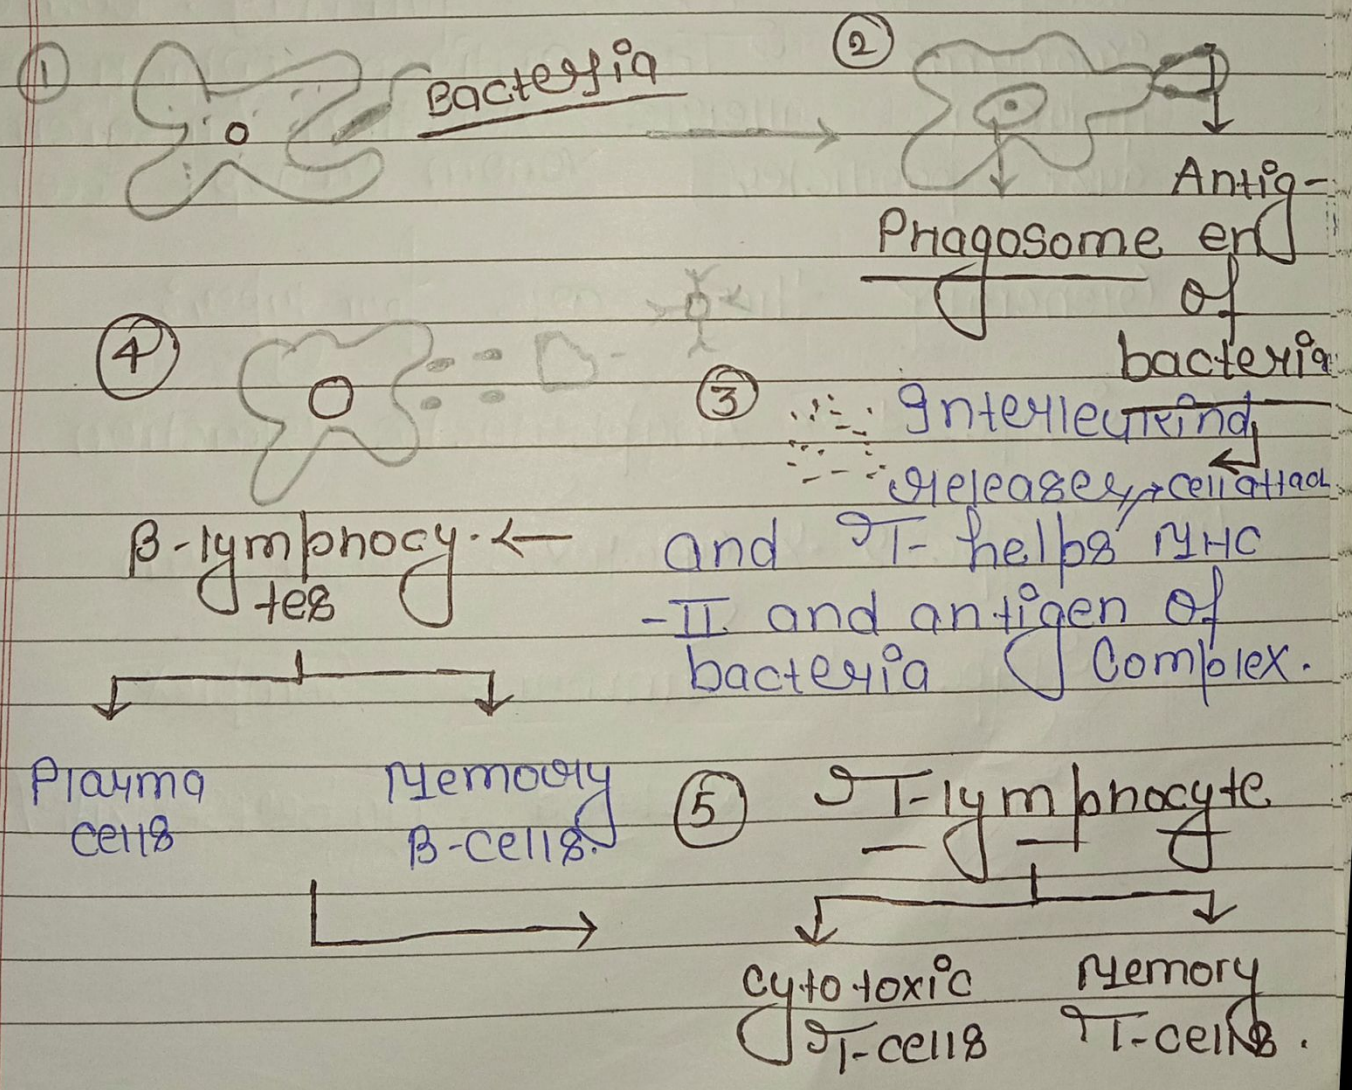 ①
Bacteria
②
Antig-
Phagosome en
of
bacteria
③ Interleukind
releases, cell attach
and T- helps MHC
-II and antigen of
bacteria complex.
④
B-lymphocy.
tes
Plasma
cells
Memory
B-cells.
⑤ T-lymphocyte
Cytotoxic
T-cells
Memory
T-cells.